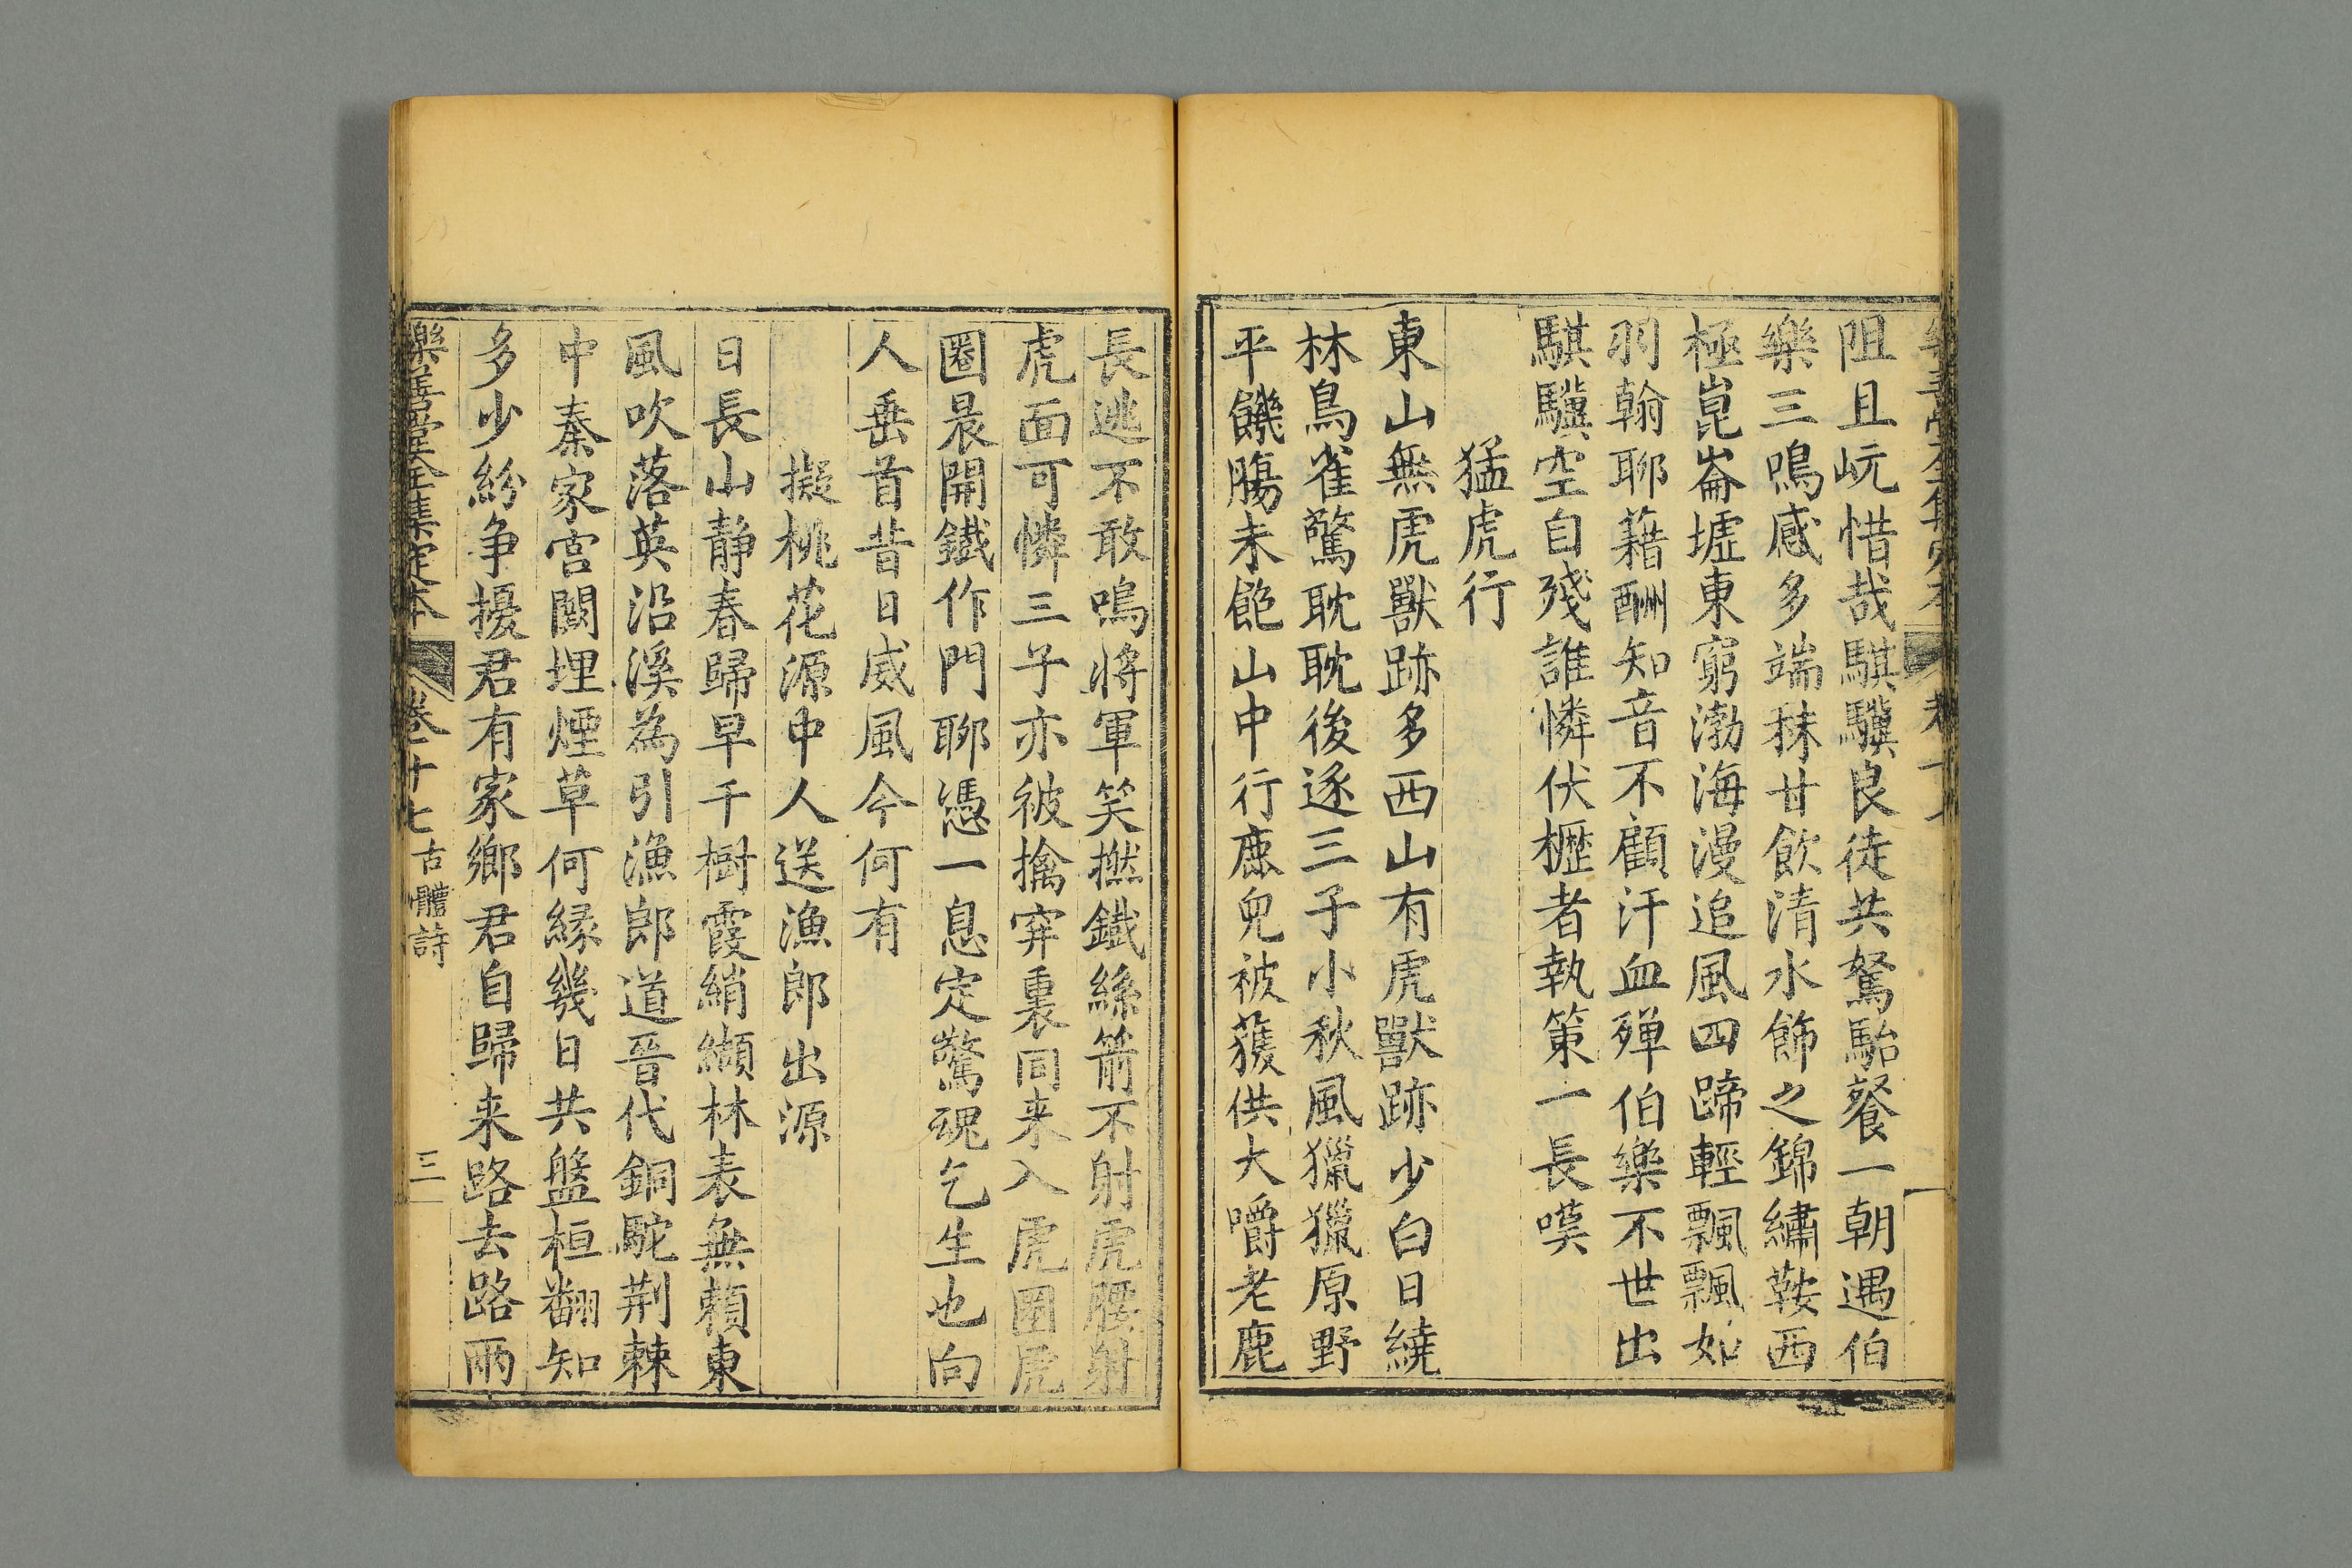 阻且岏惜哉騏驥良徒共駑駘餐一朝遇伯
樂三鳴感多端秣甘飲清水飾之錦繡鞍西
極崑崙墟東窮渤海漫追風四蹄輕飄飄如
羽翰聊藉酬知音不顧汗血殫伯樂不世出
騏驥空自殘誰憐伏櫪者執策一長嘆
猛虎行
東山無虎獸跡多西山有虎獸跡少白日繞
林鳥雀驚耽耽後逐三子小秋風獵獵原野
平饑腸未飽山中行麀兕被獲供大嚼老鹿
長逃不敢鳴將軍笑撚鐵絲箭不射虎腰射
虎面可憐三子亦被擒穽裏同来入虎圈虎
圈晨開鐵作門聊憑一息定驚魂乞生也向
人垂首昔日威風今何有
擬桃花源中人送漁郎出源
日長山静春歸早千樹霞綃纈林表無賴東
風吹落英沿溪為引漁郎道晉代銅駝荆棘
中秦家宮闕埋煙草何縁幾日共盤桓翻知
多少紛争擾君有家鄉君自歸来路去路兩
樂善堂全集定本 卷十七 古體詩 三